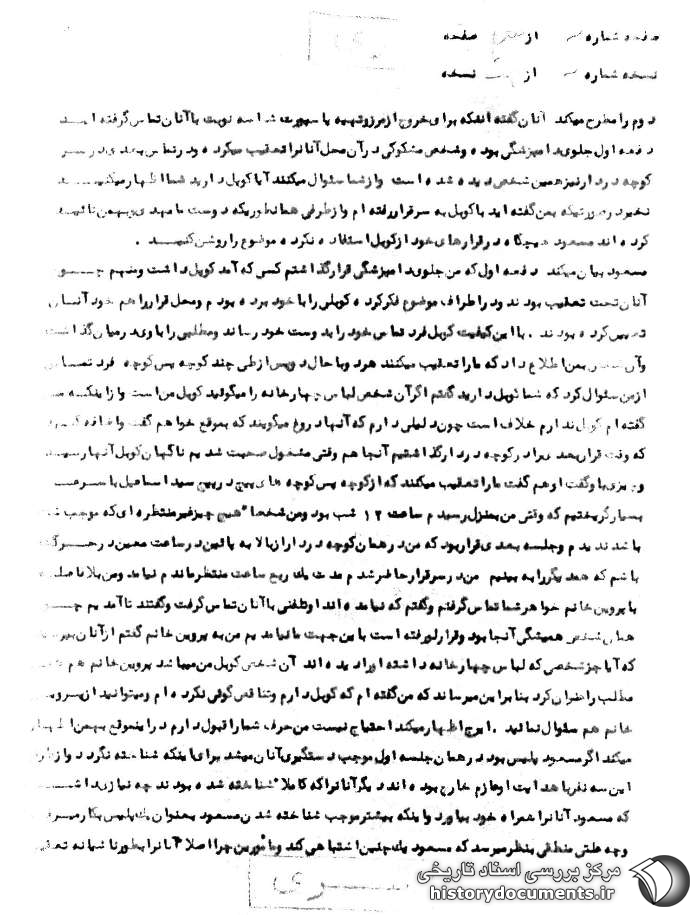 صفحه شماره از صفحه
نسخه شماره از نسخه
دوم را مطرح میکند آنان گفته اند که برای خروج از مرز و تهیه پاسپورت شما سه نوبت با آنان تماس گرفته اید
دفعه اول جلوی دامپزشگی بوده و شخص مشکوکی در آن محل آنانرا تعقیب میکرده و در تماس بعدی در سر
کوچه دردار نیز همین شخص دیده شده است و از شما سئوال میکنند آیا کوپل دارید شما اظهار میکنید
نخیر در صورتیکه بمن گفته اید با کوپل به سر قرار رفته ام و از طرفی همانطوریکه دوست ما مهدی و بهمن تائید
کرده اند مسعود هیچگاه در قرارهای خود از کوپل استفاده نکرده موضوع را روشن کنید .
مسعود بیان میکند دفعه اول که من جلوی دامپزشگی قرار گذاشتم کسی که آمد کوپل داشت و منهم چون
آنان تحت تعقیب بودند و در اطراف موضوع فکر کرده کوپلی را با خود برده بودم و محل قرار را هم خود آنان
تعیین کرده بودند . با این کیفیت کوپل فرد تماس خود را به دوست خود رساند و مطلبی را با وی در میان گذاشت
و آن بمن اطلاع داد که ما را تعقیب میکنند هر دو با حال دو پس از طی چند کوچه پس کوچه فرد تماس
از من سئوال کرد که شما کوپل دارید گفتم اگر آن شخص لباس چهارخانه را میگوئید کوپل من است و از اینکه
گفته ام کوپل ندارم خلاف است چون دلیلی دارم که آنها دروغ میگویند که بموقع خواهم گفت و اضافه کرد
که وقت قرار بعدی را در کوچه دردار گذاشتیم آنجا هم وقتی مشغول صحبت شدیم ناگهان کوپل آنها رسید
و چیزی باو گفت او هم گفت ما را تعقیب میکنند که از کوچه پس کوچه های پیچ در پیچ سید اسماعیل با سرعت
بسیار گریختیم که وقتی من بمنزل رسیدم ساعت ۱۲ شب بود و من شخصا" هیچ چیز غیر منتظره ای که موجب شک
باشد ندیدم و جلسه بعدی قرار بود که من در همان کوچه دردار از بالا به پائین در ساعت معین در حرکت
باشم که همدیگر را به بینیم من در سر قرار حاضر شدم مدت یک ربع ساعت منتظر ماندم نیامد و من بلافاصله
با پروین خانم خواهر شما تماس گرفتم و گفتم که نیامده اند او تلفنی با آنان تماس گرفت و گفتند تا آمدیم چون
همان شخص همیشگی آنجا بود و قرار لو رفته است باین جهت ما نیامدیم من به پروین خانم گفتم از آنان بپرسید
که آیا جز شخصی که لباس چهارخانه داشته او را دیده اند آن شخص کوپل من میباشد پروین خانم هم
مطلب را عنوان کرد بنابراین میرساند که من گفته ام که کوپل دارم و تناقض گوئی نکرده ام و میتوانید از پروین
خانم هم سئوال نمائید . ایرج اظهار میکند احتیاج نیست من حرف شما را قبول دارم در اینموقع بهمن اظهار
میکند اگر مسعود پلیس بود در همان جلسه اول موجب دستگیری آنان میشد برای اینکه شناخته نگردد و از طرفی
این سه نفر با هدایت او عازم خارج بوده اند دیگر آنانرا که کاملا" شناخته شده بودند چه نیازی داشت
که مسعود آنانرا همراه خود بیاورد و اینکه بیشتر موجب شناخته شدن مسعود بعنوان یک پلیس بکار میرفت
و چه علتی منطقی بنظر میرسد که مسعود یک چنین اشتباهی کند و مأمورین چرا اصلا" آنانرا بطور ناشیانه تعقیب
سری
مرکز بررسی اسناد تاریخی
historydocuments.ir